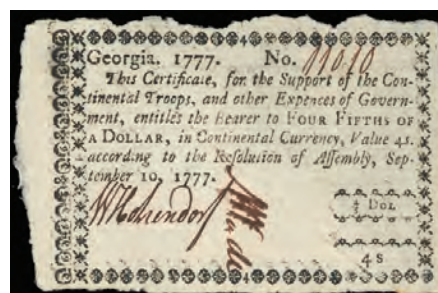 Georgia. 1777. No.
This Certificate, for the Support of the Con-
tinental Troops, and other Expences of Govern-
ment, entitles the Bearer to FOUR FIFTHS OF
A DOLLAR, in Continental Currency, Value 4s.
according to the Resolution of Assembly, Sep-
tember 10, 1777.
⅘ DOL
4 S